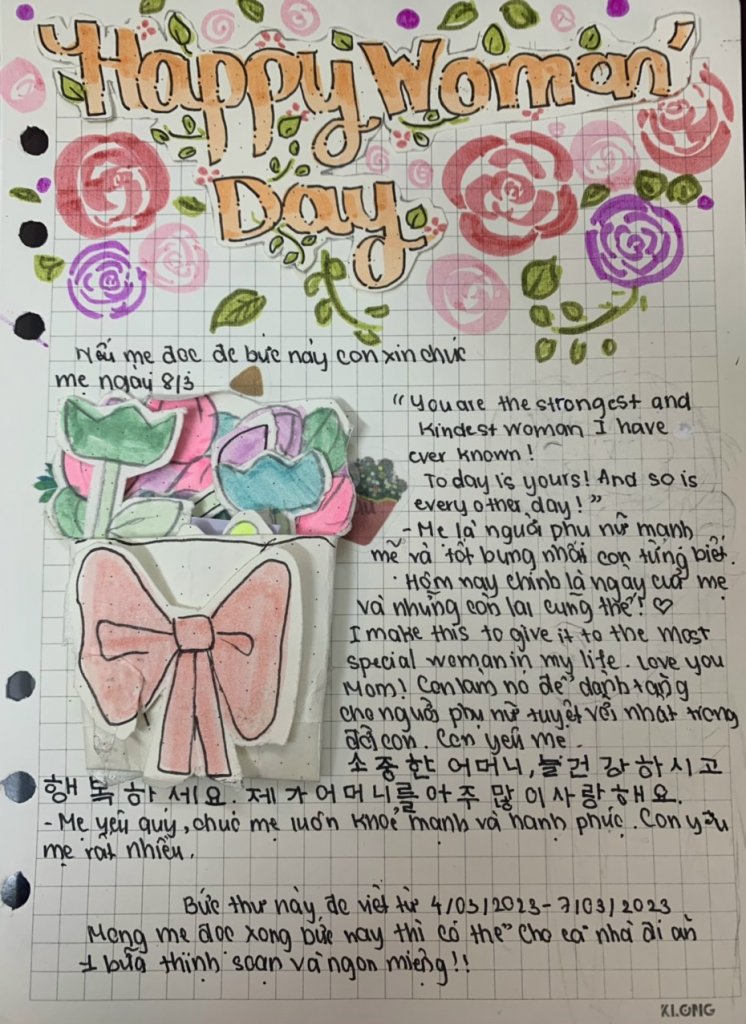 Happy Woman'
Day
Nếu mẹ đọc đc bức này con xin chúc
mẹ ngày 8/3
"You are the strongest and
kindest woman I have
ever known!
Today is yours! And so is
every other day!"
- Mẹ là người phụ nữ mạnh
mẽ và tốt bụng nhất con từng biết.
Hôm nay chính là ngày của mẹ
và những còn lại cũng thế! ♡
I make this to give it to the most
special woman in my life. Love you
Mom! Con làm nó để dành tặng
cho người phụ nữ tuyệt vời nhất trong
đời con. Con yêu mẹ.
소중한 어머니, 늘 건강하시고
행복하세요. 제가 어머니를 아주 많이 사랑해요.
- Mẹ yêu quý, chúc mẹ luôn khoẻ mạnh và hạnh phúc. Con yêu
mẹ rất nhiều.
Bức thư này đc viết từ 4/03/2023 - 7/03/2023
Mong mẹ đọc xong bức này thì có thể cho cả nhà đi ăn
1 bữa thịnh soạn và ngon miệng!!
KLONG